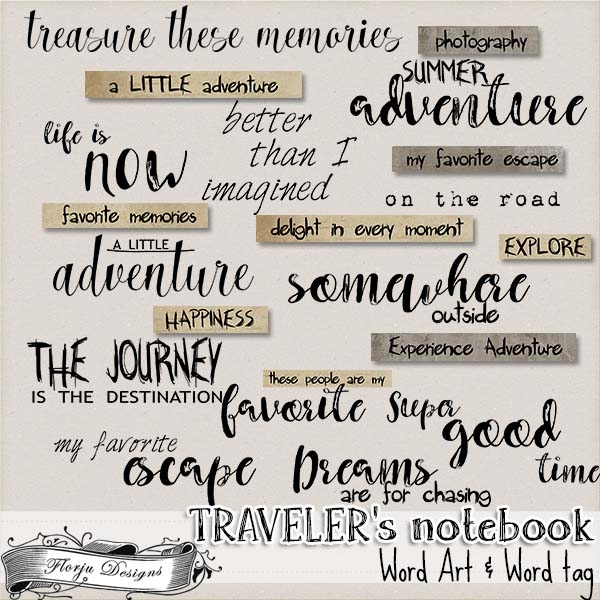 treasure these memories
photography
a LITTLE adventure
SUMMER
adventure
better
than I
imagined
life is
now
my favorite escape
on the road
favorite memories
delight in every moment
EXPLORE
A LITTLE
adventure
somewhere
outside
HAPPINESS
Experience Adventure
THE JOURNEY
IS THE DESTINATION
these people are my
favorite
Super
good
time
my favorite
escape
Dreams
are for chasing
TRAVELER's notebook
Florju Designs
Word Art & Word tag